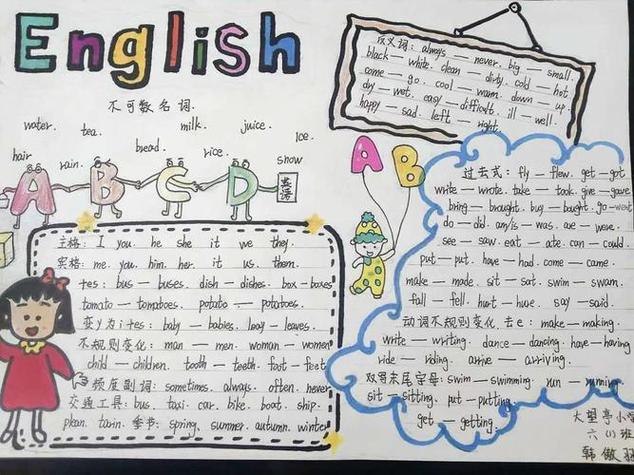 English
不可数名词:
water. tea. milk. juice. ice.
hair rain. bread. rice. snow
A B C D 英语
主格: I you. he she it we they.
宾格: me. you. him. her. it us. them.
+es: bus — buses. dish — dishes. box — boxes
tomato — tomatoes. potato — potatoes.
变y为i+es: baby — babies. leaf — leaves.
不规则变化: man — men. woman — women
child — children. tooth — teeth. foot — feet
频度副词: sometimes. always. often. never
交通工具: bus. taxi. car. bike. boat. ship.
plean. 季节: spring. summer. autumn. winter
反义词: always — never. big — small.
black — white. clean — dirty. cold — hot
come — go. cool — warm. down — up.
dry — wet. easy — difficult. ill — well.
happy — sad. left — right.
A B
过去式: fly — flew. get — got
write — wrote. take — took. give — gave
bring — brought. buy — bought. go — went
do — did. am/is — was. are — were.
see — saw. eat — ate. can — could.
put — put. have — had. come — came.
make — made. sit — sat. swim — swam.
fall — fell. say — said.
动词不规则变化. 去e: make — making.
write — writing. dance — dancing. have — having
ride — riding. arrive — arriving.
双写末尾字母: swim — swimming. run — running
sit — sitting. put — putting.
get — getting
大望亭小学
六(1)班
韩傲